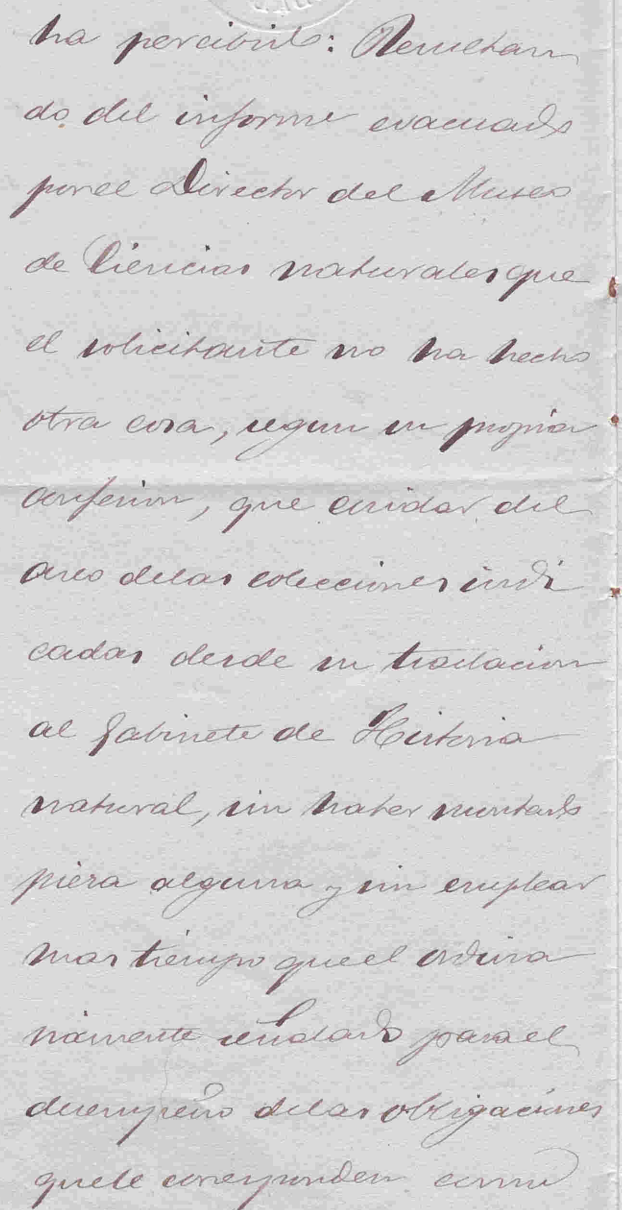 ha percibido: Resultan
do del informe evacuado
por el Director del Museo
de Ciencias naturales que
el solicitante no ha hecho
otra cosa, segun su propia
confesion, que cuidar del
aseo de las colecciones indi
cadas desde su traslacion
al Gabinete de Historia
natural, sin haber montado
pieza alguna y sin emplear
mas tiempo que el ordina
riamente señalado para el
desempeño de las obligaciones
que le corresponden como